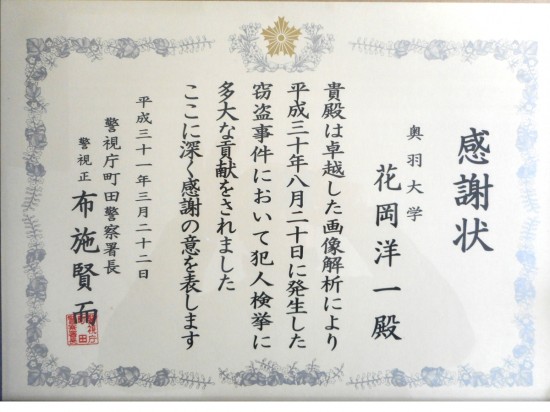 感謝状
奥羽大学
花岡洋一殿
貴殿は卓越した画像解析により
平成三十年八月二十日に発生した
窃盗事件において犯人検挙に
多大な貢献をされました
ここに深く感謝の意を表します
平成三十一年三月二十二日
警視庁町田警察署長
警視正 布施賢